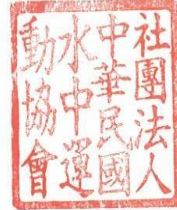 社團法人
中華民國
水中運
動協會